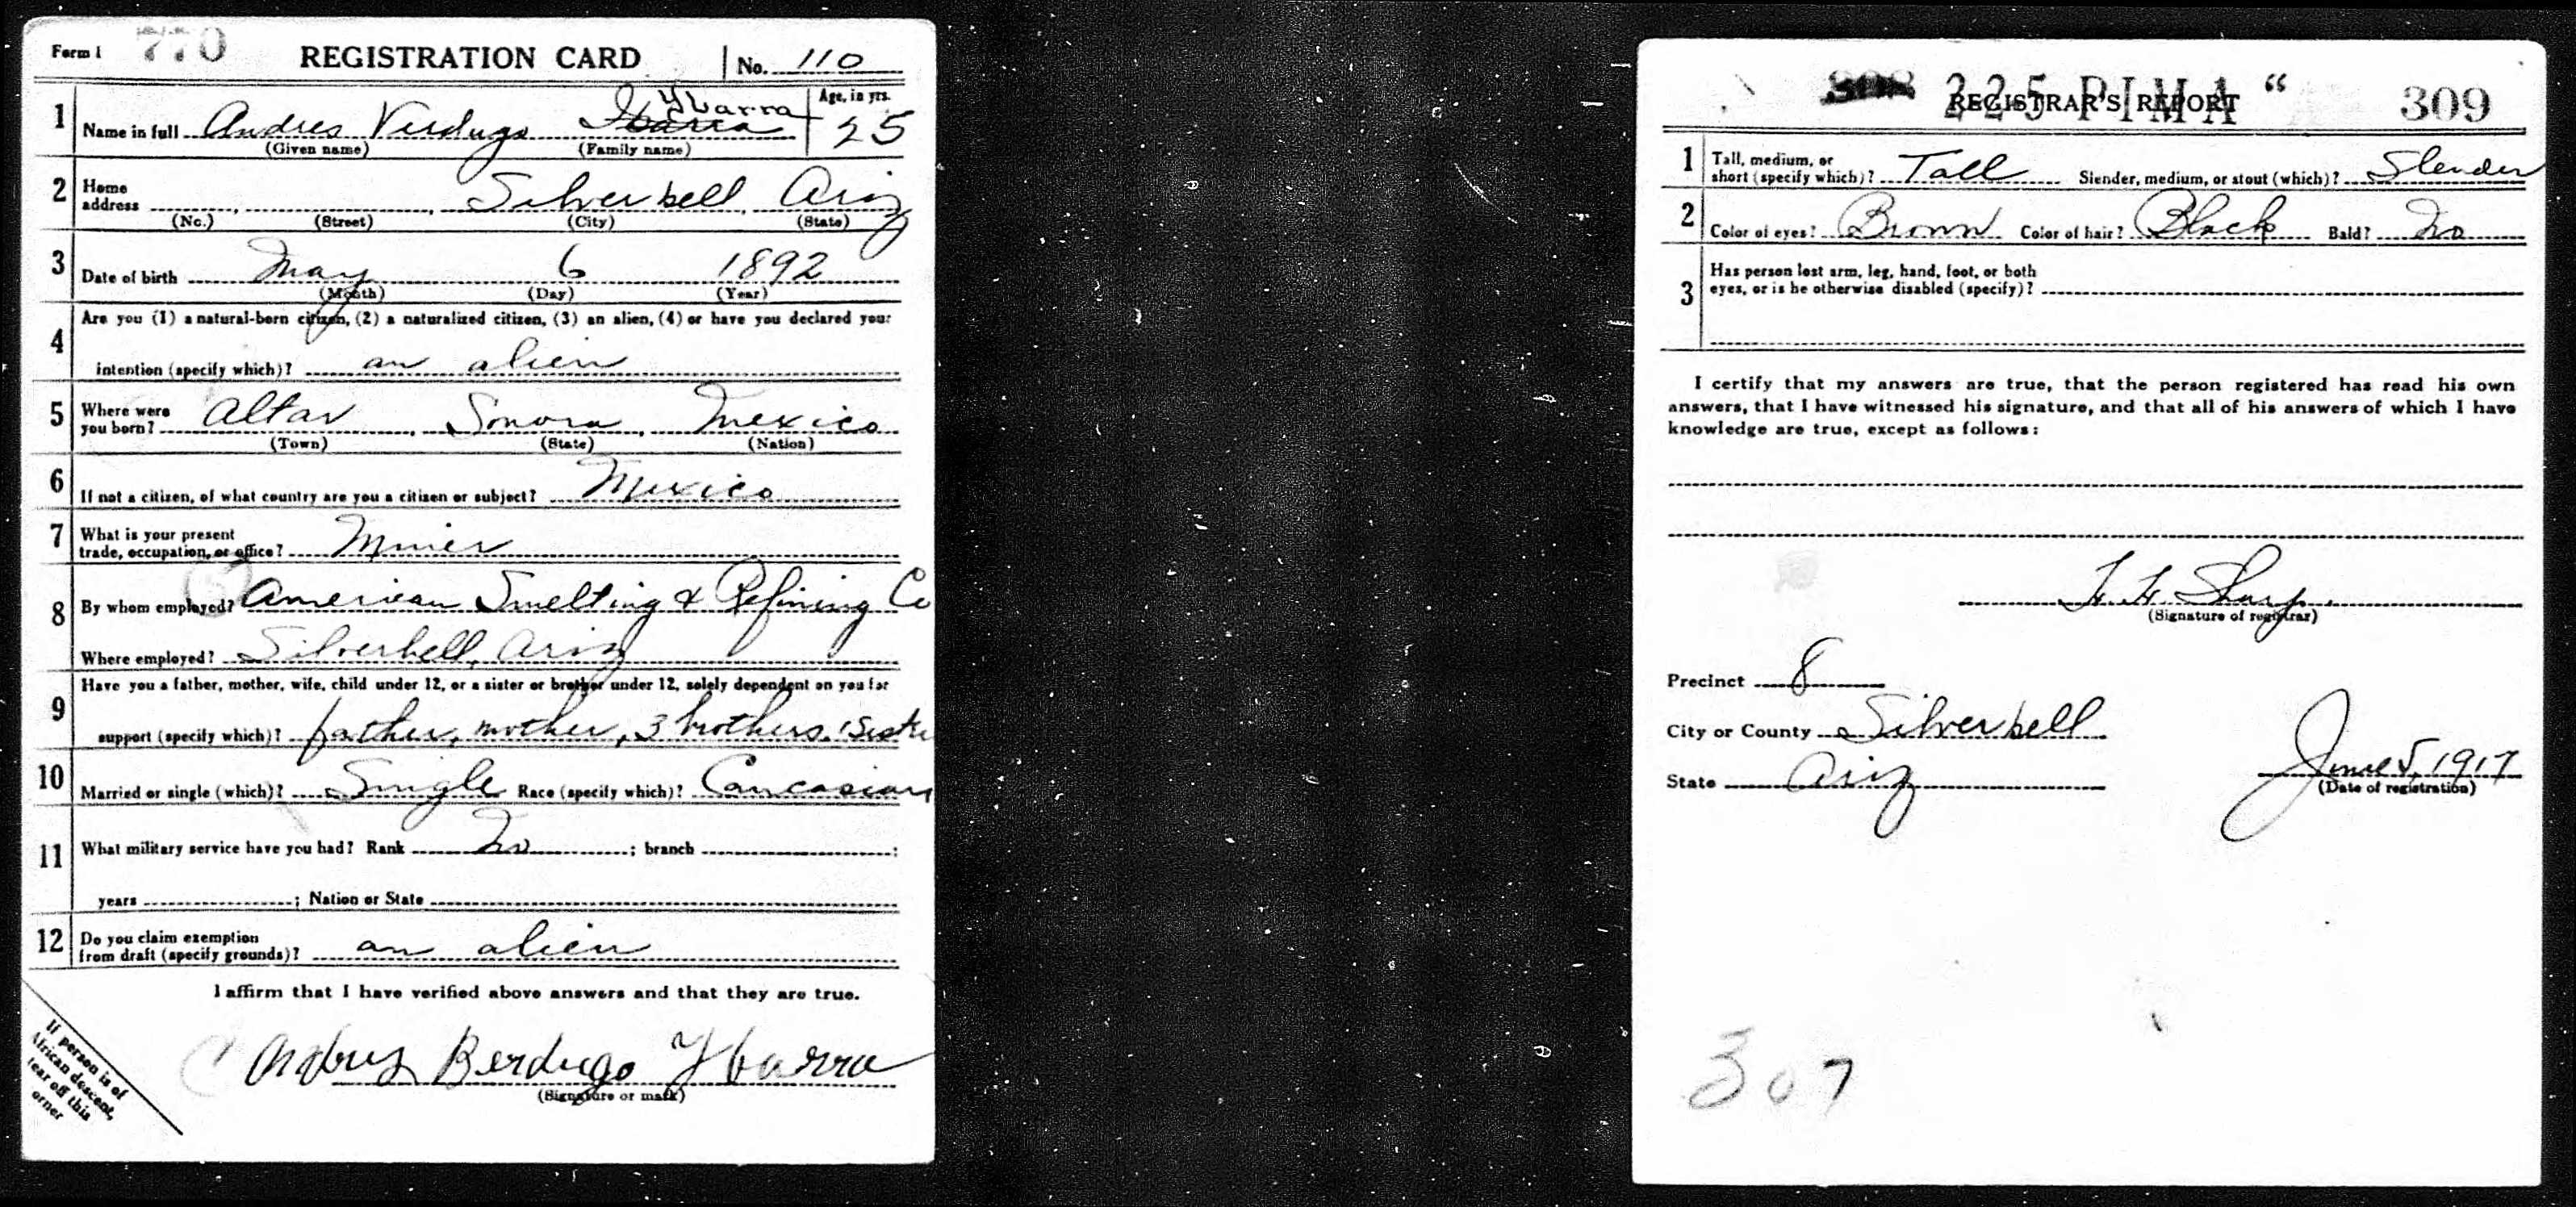 Form 1 770 REGISTRATION CARD No. 110
1 Name in full Andres Verdugo Ibarra Ybarra Age, in yrs. 25
(Given name) (Family name)
2 Home address Silverbell, Ariz
(No.) (Street) (City) (State)
3 Date of birth May 6 1892
(Month) (Day) (Year)
4 Are you (1) a natural-born citizen, (2) a naturalized citizen, (3) an alien, (4) or have you declared your
intention (specify which)? an alien
5 Where were you born? Altar, Sonora, Mexico
(Town) (State) (Nation)
6 If not a citizen, of what country are you a citizen or subject? Mexico
7 What is your present trade, occupation, or office? Miner
8 By whom employed? American Smelting & Refining Co
Where employed? Silverbell, Ariz
9 Have you a father, mother, wife, child under 12, or a sister or brother under 12, solely dependent on you for
support (specify which)? father, mother, 3 brothers, 1 Sister
10 Married or single (which)? Single Race (specify which)? Caucasian
11 What military service have you had? Rank No ; branch ;
years ; Nation or State
12 Do you claim exemption from draft (specify grounds)? an alien
I affirm that I have verified above answers and that they are true.
Berdugo Ybarra
(Signature or mark)
If person is of
African descent,
tear off this
corner
225 PIMA “ 309
REGISTRAR'S REPORT
1 Tall, medium, or short (specify which)? Tall Slender, medium, or stout (which)? Slender
2 Color of eyes? Brown Color of hair? Black Bald? No
3 Has person lost arm, leg, hand, foot, or both
eyes, or is he otherwise disabled (specify)?
I certify that my answers are true, that the person registered has read his own
answers, that I have witnessed his signature, and that all of his answers of which I have
knowledge are true, except as follows:
Sharp
(Signature of registrar)
Precinct 8
City or County Silverbell
State Ariz
June 5, 1917
(Date of registration)
307